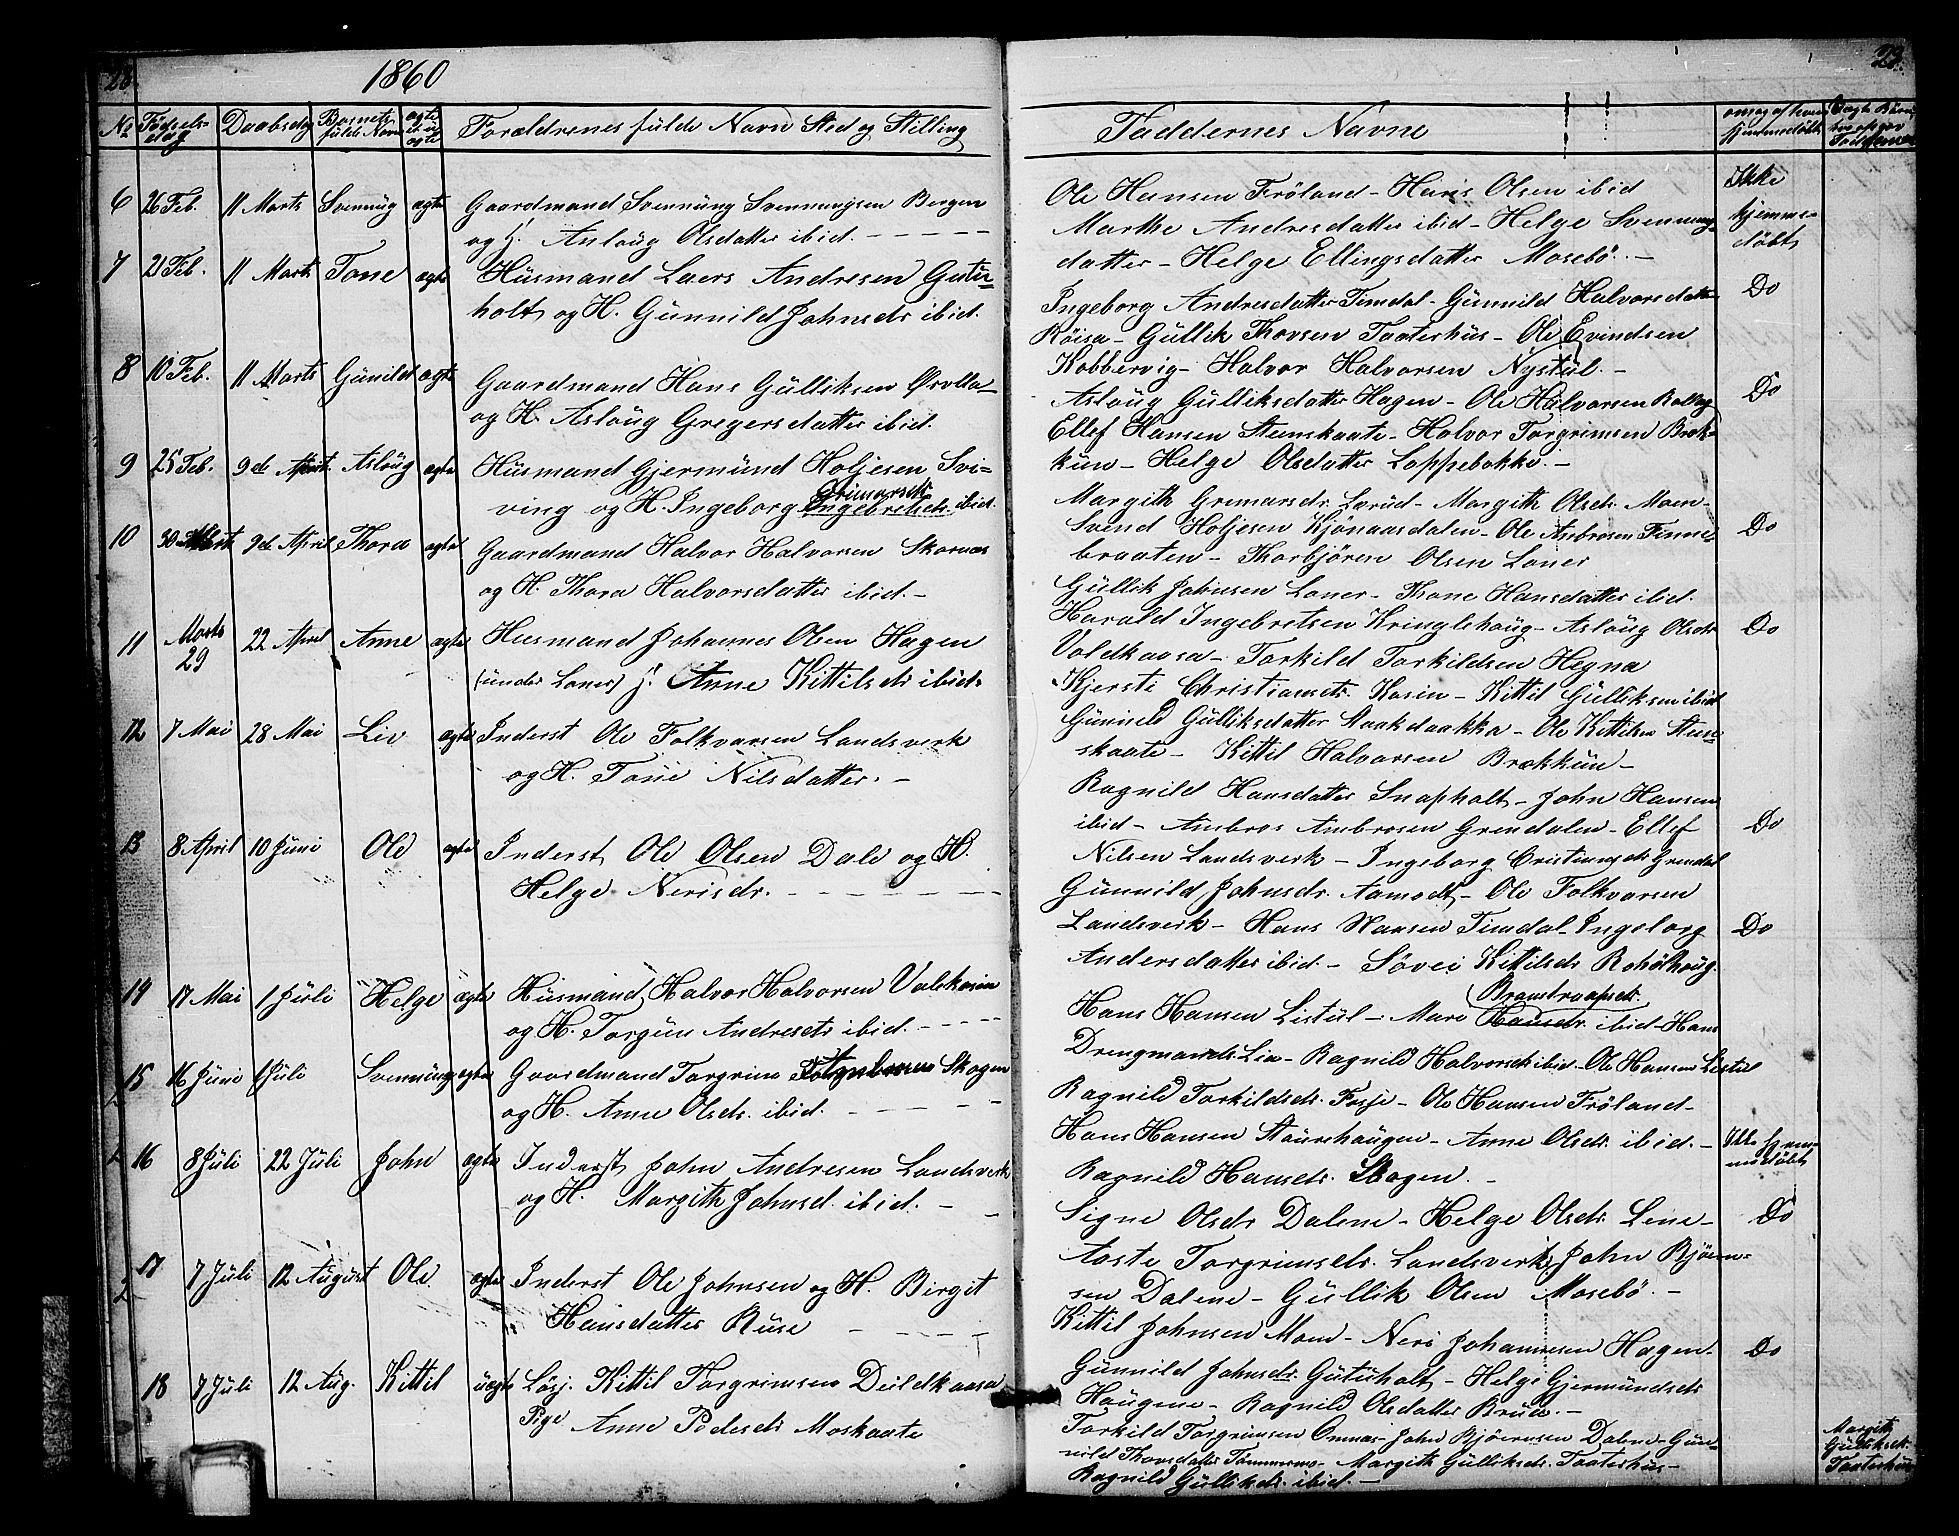 28. 1860
No Fødsels- Daabsdag Barnets ægte Forældrenes fulde Navn Sted og Stilling
dag fulde Navn el. u-
ægte
6 26 Feb. 11 Marts Svennüg ægte Gaardmand Svennüng Svennungsen Bergen
og H. Aslaüg Olsdatter ibid.
7 21 Feb. 11 Marts Tone ægte Hüsmand Laers Andresen Gütü-
holt og H. Günnild Johnsdr ibid.
8 10 Feb. 11 Marts Günild ægte Gaardmand Hans Gülliksen Ørvlla
og H. Aslaüg Gregersdatter ibid.
9 25 Feb. 9de April Aslaüg ægte Hüsmand Gjermünd Holjesen Svi-
ving og H. Ingeborg Grimarsdr Ingebretsdr ibid.
10 30 Mart 9de April Thora ægte Gaardmand Halvor Halvorsen Skornes
og H. Thora Halvorsdatter ibid.-
11 Marts 29 22 April Anne ægte Husmand Johannes Olsen Hagen
(ünder Loner) H. Anne Kittilsdr ibid.
12 7 Mai 28 Mai Liv ægte Inderst Ole Folkvarsen Landsverk
og H. Tone Nilsdatter. -
13 8 April 10 Jüni Ole ægte Inderst Ole Olsen Dale og H.
Helge Nerisdr.
14 17 Mai 1 Jüli Helge ægte Hüsmand Halvor Halvorsen Valskosin
og H. Torgün Andresdr ibid.
15 16 Jüni 1 Jüli Svennüng ægte Gaardmand Torgrim Skogen
og H. Anne Olsdr. ibid.
16 8 Jüli 22 Jüli John ægte Inderst John Andresen Landsverk
og H. Margith Johnsd. ibid. -
17 7 Jüli 12 August Ole ægte Inderst Ole Johnsen og H. Birgit
Hansdatter Rüse
18 7 Jüli 12 Aug. Kittil üægte Løsj. Kittil Torgrimsen Deildkaasa
Pige Anne Pedersdr Moskaate
29.
Faddernes Navne
Ole Hansen Fröland - Hans Olsen ibid Ikke
Marthe Andresdatter ibid - Helge Svennung- hjemme-
datter - Helge Ellingsdatter Mosebö. - döbt
Ingeborg Andresdatter Timdal - Günnild Halvorsdatter Do
Röisa - Güllik Thovsen Taaterhüs - Ole Evindsen
Kobbervig - Halvor Halvorsen Nystül. -
Aslaüg Gülliksdatter Hagen - Ole Halvorsen Do
Ellef Hansen Steenskaate - Halvor Torgrimsen Bræk-
kün - Helge Olsdatter Loppebokke. -
Margith Grimarsdr. Lorüd - Margith Olsdr. Moen-
Svend Holjesen Kjönaasdalen - Ole Ambrosen Finne- Do
braaten - Thorbjören Olsen Loner
Güllik Johnsen Loner - Thone Hansdatter ibid.
Harald Ingebretsen Kringlehaüg - Aslaüg Olsdr Do
Voldkaasa - Torkild Torkildsen Hegna
Kjersti Christiansdr. Kosin - Kittil Gülliksen ibid
Günnild Gülliksdatter Staakdaakka - Ole Kittilsen Steen-
skaate - Kittil Halvorsen Brækkün -
Ragnild Hansdatter Snapholt - John Hansen
ibid - Ambros Ambrosen Grendalen - Ellef Do
Nilsen Landsverk - Ingeborg Cristiansdr Grendal
Günnild Johnsdr. Aamodt - Ole Folkvarsen
Landsverk - Hans Hansen Timdal - Ingeborg Do
Andersdatter ibid. - Sövei Kittilsdr Roholthaüg.
Hans Hansen Listül - Mari Hansdr. ibid - Hans
Drengmansdr. Lia - Ragnild Halvorsdr ibid - Ole Hansen Listül
Ragnild Torkildsdr. Fosje - Ole Hansen Fröland -
Hans Hansen Staürehaügen - Anne Olsdr. ibid. - Ikke hjem-
Ragnild Hansdr. Skogen. - medöbt
Signe Olsdr Dalene - Helge Olsdr. Lene - Do
Aaste Torgrimsdr. Landsverk John Björen-
sen Dalene - Güllik Olsen Mosebö. -
Kittil Johnsen Moen - Neri Johannesen Hagen - Do
Günnild Johnsdr. Gütüholt - Helge Gjermündsdr
Haügene - Ragnild Olsdatter Brüa. -
Torkild Torgrimsen Omnas - John Björensen Dalene - Gün-
nild Thovsdatter Tømmermo - Margith Gülliksdr. Taaterhüs -
Ragnild Gülliksdr. ibid. -
Margith
Gülliksdr.
Taaterhüs